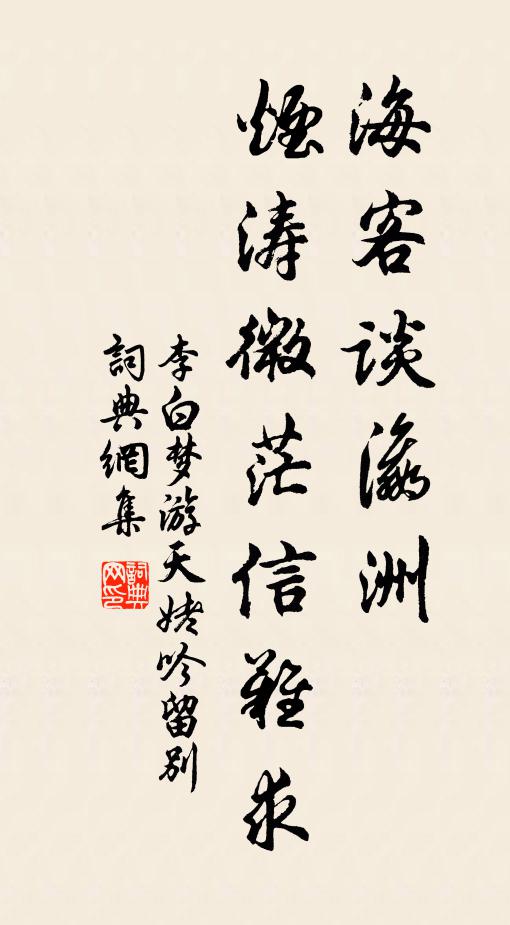 海客谈瀛洲
煙涛微茫信難求
李白梦游天姥吟留别
詞典網集
詞典网印